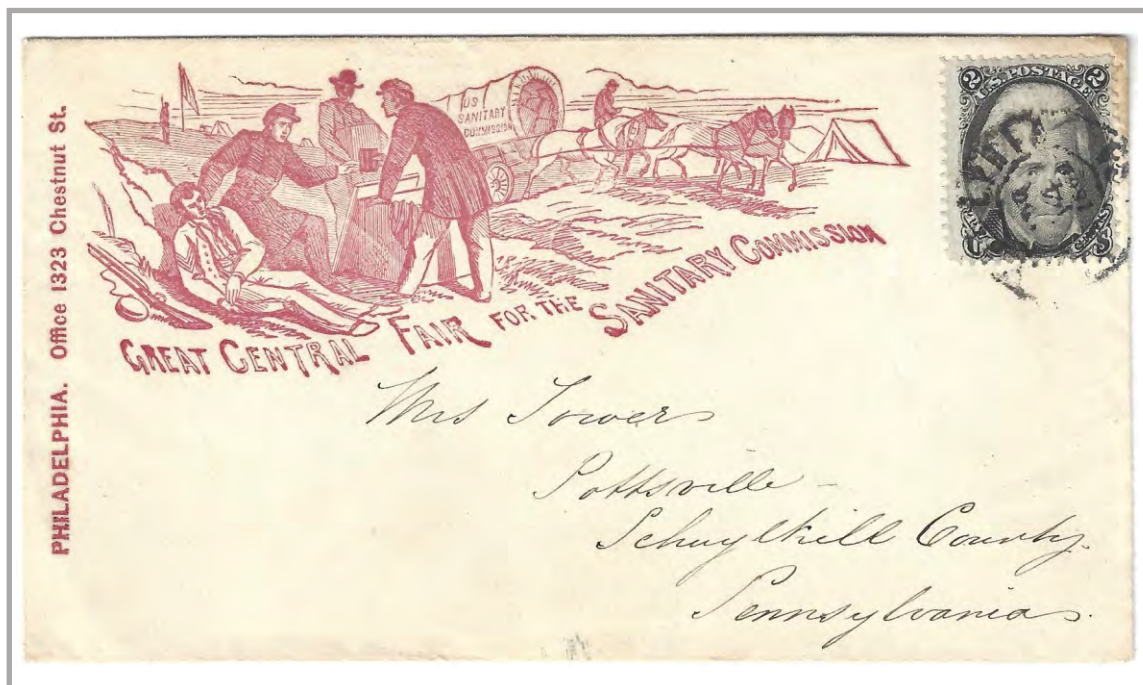 PHILADELPHIA. Office 1323 Chestnut St.
US
SANITARY
COMMISSION
GREAT CENTRAL FAIR FOR THE SANITARY COMMISSION
2 U.S. POSTAGE 2
Mrs Tower
Pottsville -
Schuylkill County.
Pennsylvania.